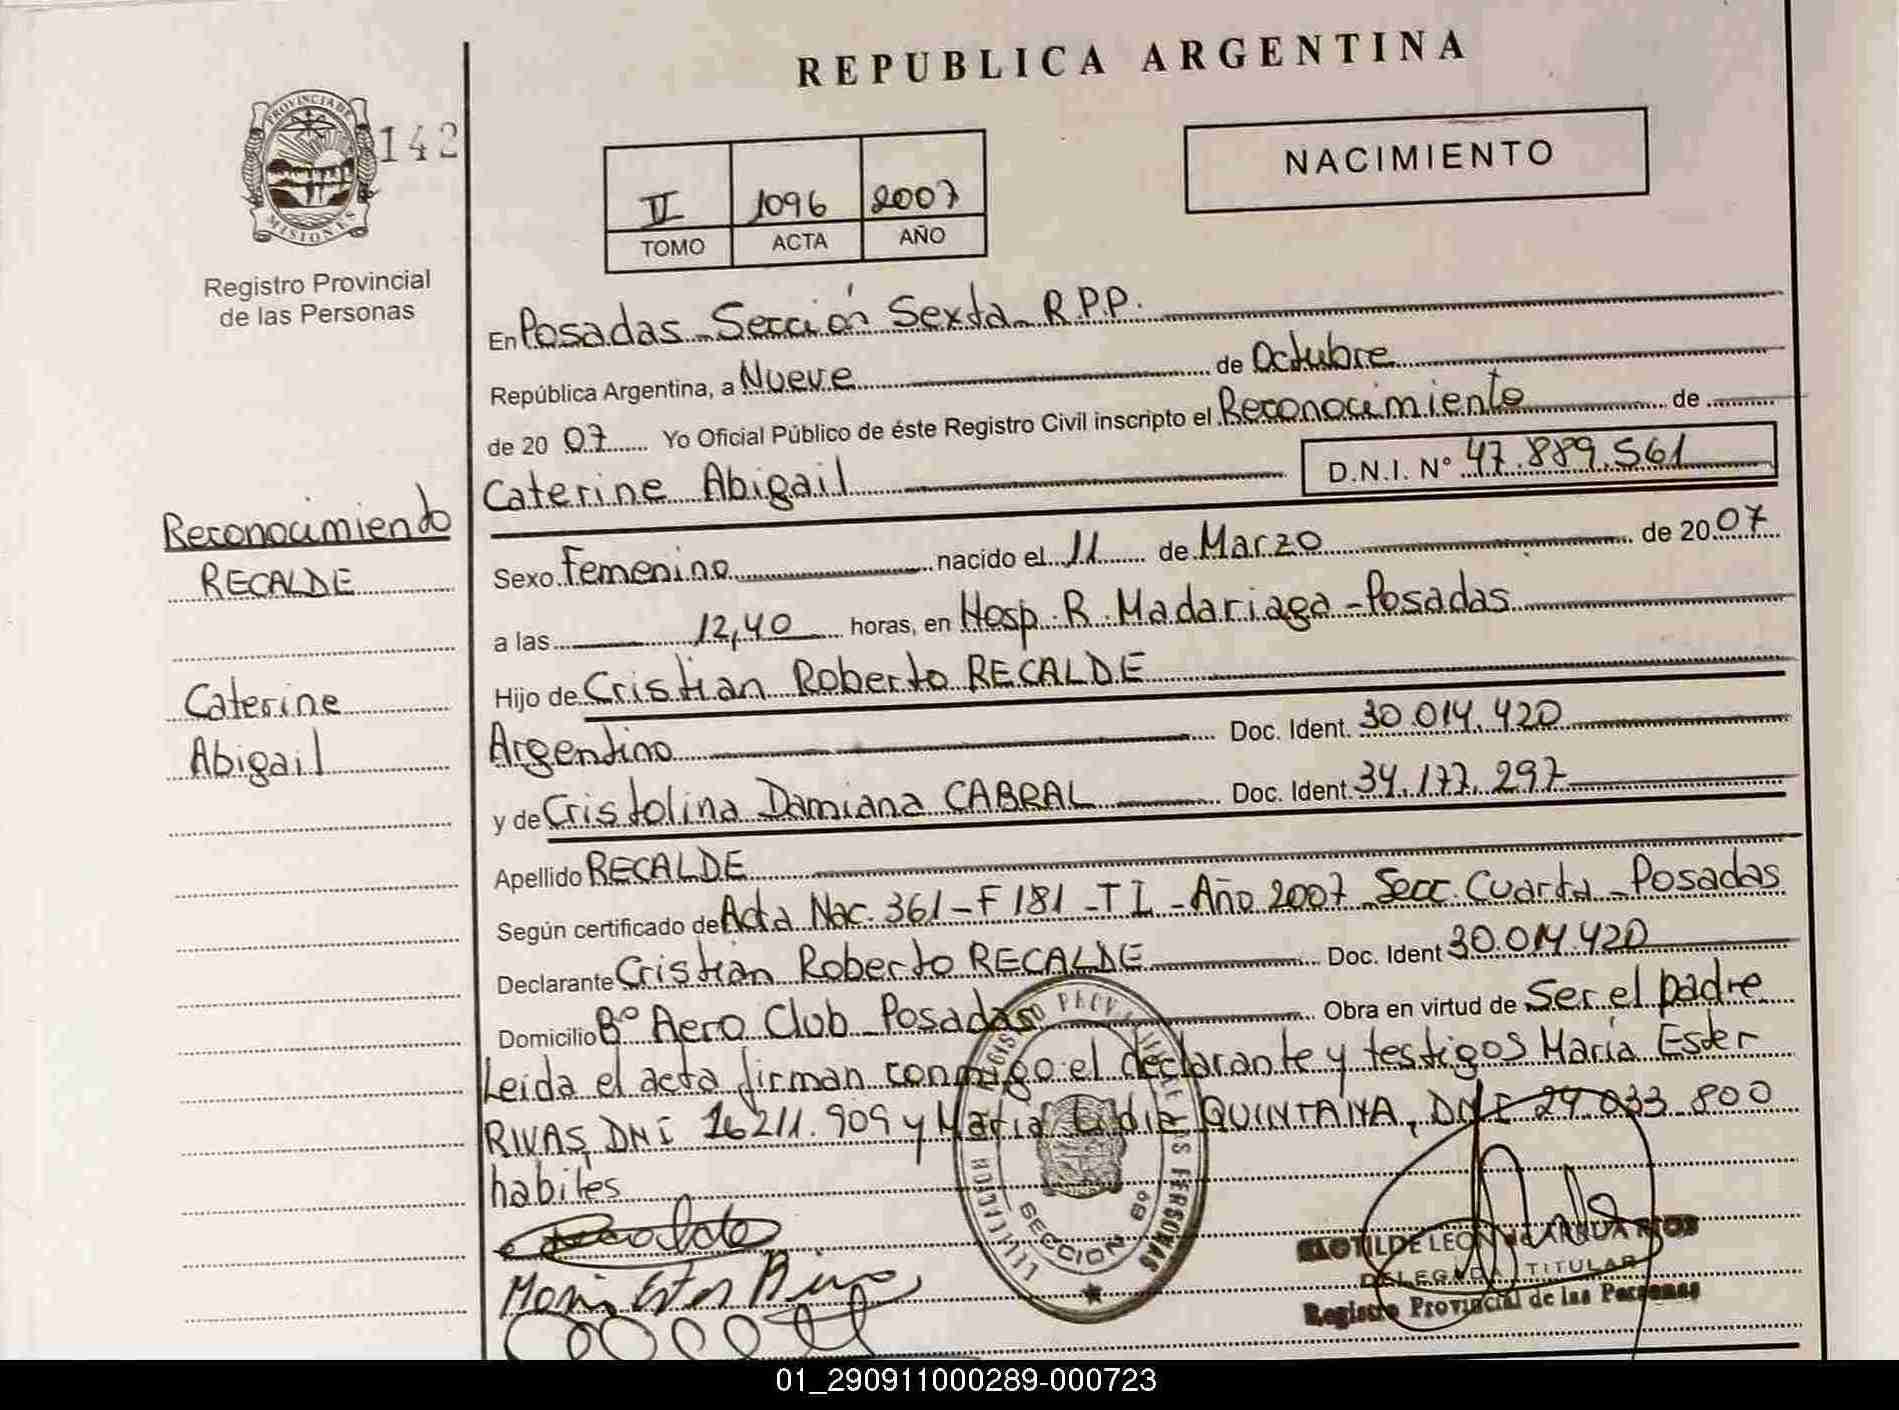 REPUBLICA ARGENTINA
PROVINCIA DE MISIONES
142
Registro Provincial
de las Personas
II 1096 2007
TOMO ACTA AÑO
NACIMIENTO
En Posadas Sección Sexta R.P.P.
República Argentina, a Nueve de Octubre
de 2007 Yo Oficial Público de éste Registro Civil inscripto el Reconocimiento de
Caterine Abigail D.N.I. N° 47.889.561
Reconocimiento
RECALDE
Caterine
Abigail
Sexo Femenino nacido el 11 de Marzo de 2007
a las 12,40 horas, en Hosp. R. Madariaga - Posadas
Hijo de Cristian Roberto RECALDE
Argentino Doc. Ident. 30.014.420
y de Cristolina Damiana CABRAL Doc. Ident. 34.177.297
Apellido RECALDE
Según certificado de Acta Nac. 361 - F 181 - T I - Año 2007 Secc. Cuarta - Posadas
Declarante Cristian Roberto RECALDE Doc. Ident 30.014.420
Domicilio B° Aero Club Posadas Obra en virtud de Ser el padre
Leida el acta firman conmigo el declarante y testigos María Ester
RIVAS, DNI 16211.909 y María Lidia QUINTANA, DNI 29.033.800
habiles
SECCION 6ª
Maria Ester Rivas
CLOTILDE LEON
DELEGADA TITULAR
Registro Provincial de las Personas
01_290911000289-000723